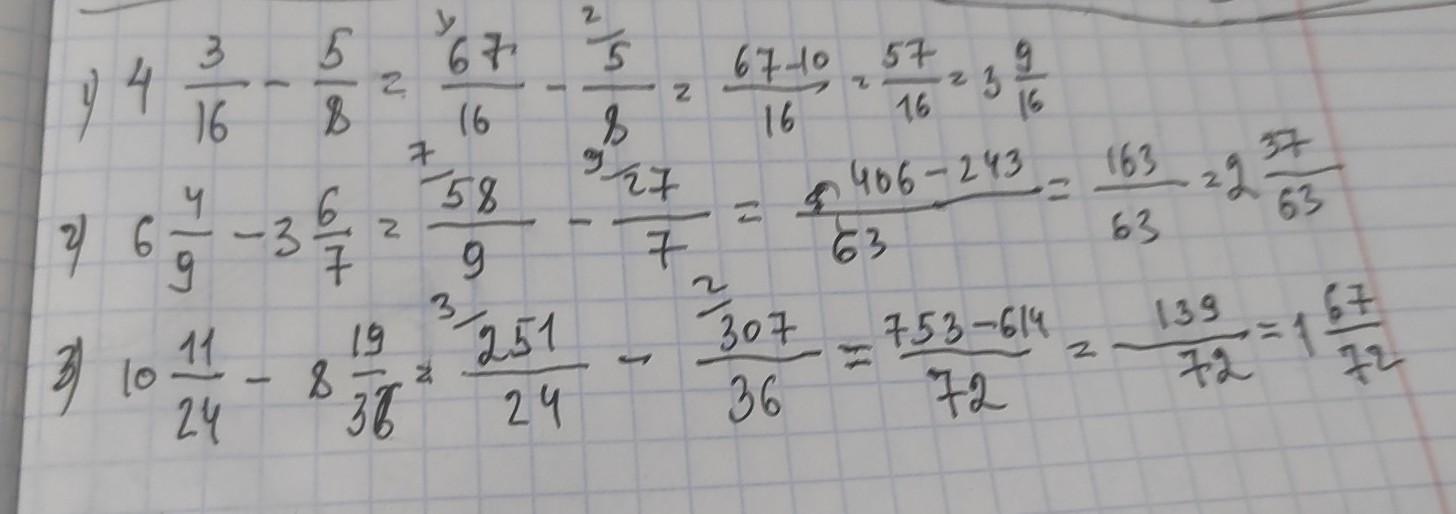 1) 4 3/16 - 5/8 = 67/16 - 2/ 5/8 = 67-10/16 = 57/16 = 3 9/16
2) 6 4/9 - 3 6/7 = 7/ 58/9 - 9/ 27/7 = 406-243/63 = 163/63 = 2 37/63
3) 10 11/24 - 8 19/36 = 3/ 251/24 - 2/ 307/36 = 753-614/72 = 139/72 = 1 67/72